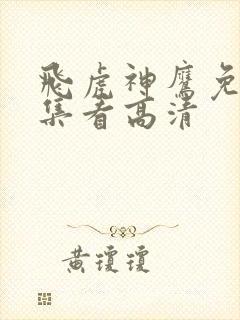 飛虎神鷹免
集看高清
黄瓊瓊